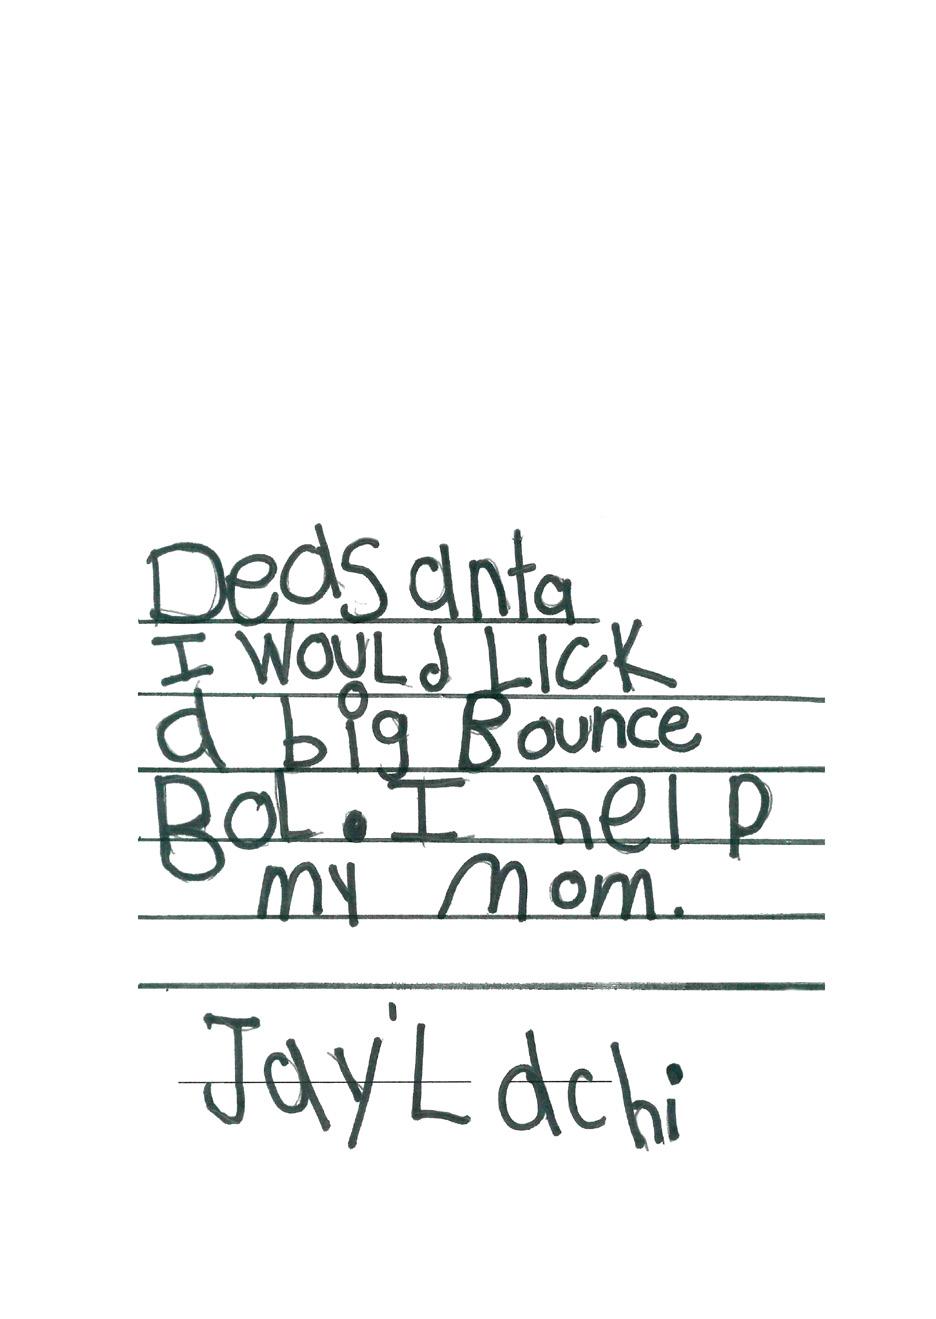 Dedsanta
I WOULd LICK
a big Bounce
BOL. I help
my Mom.
Jay'Lachi